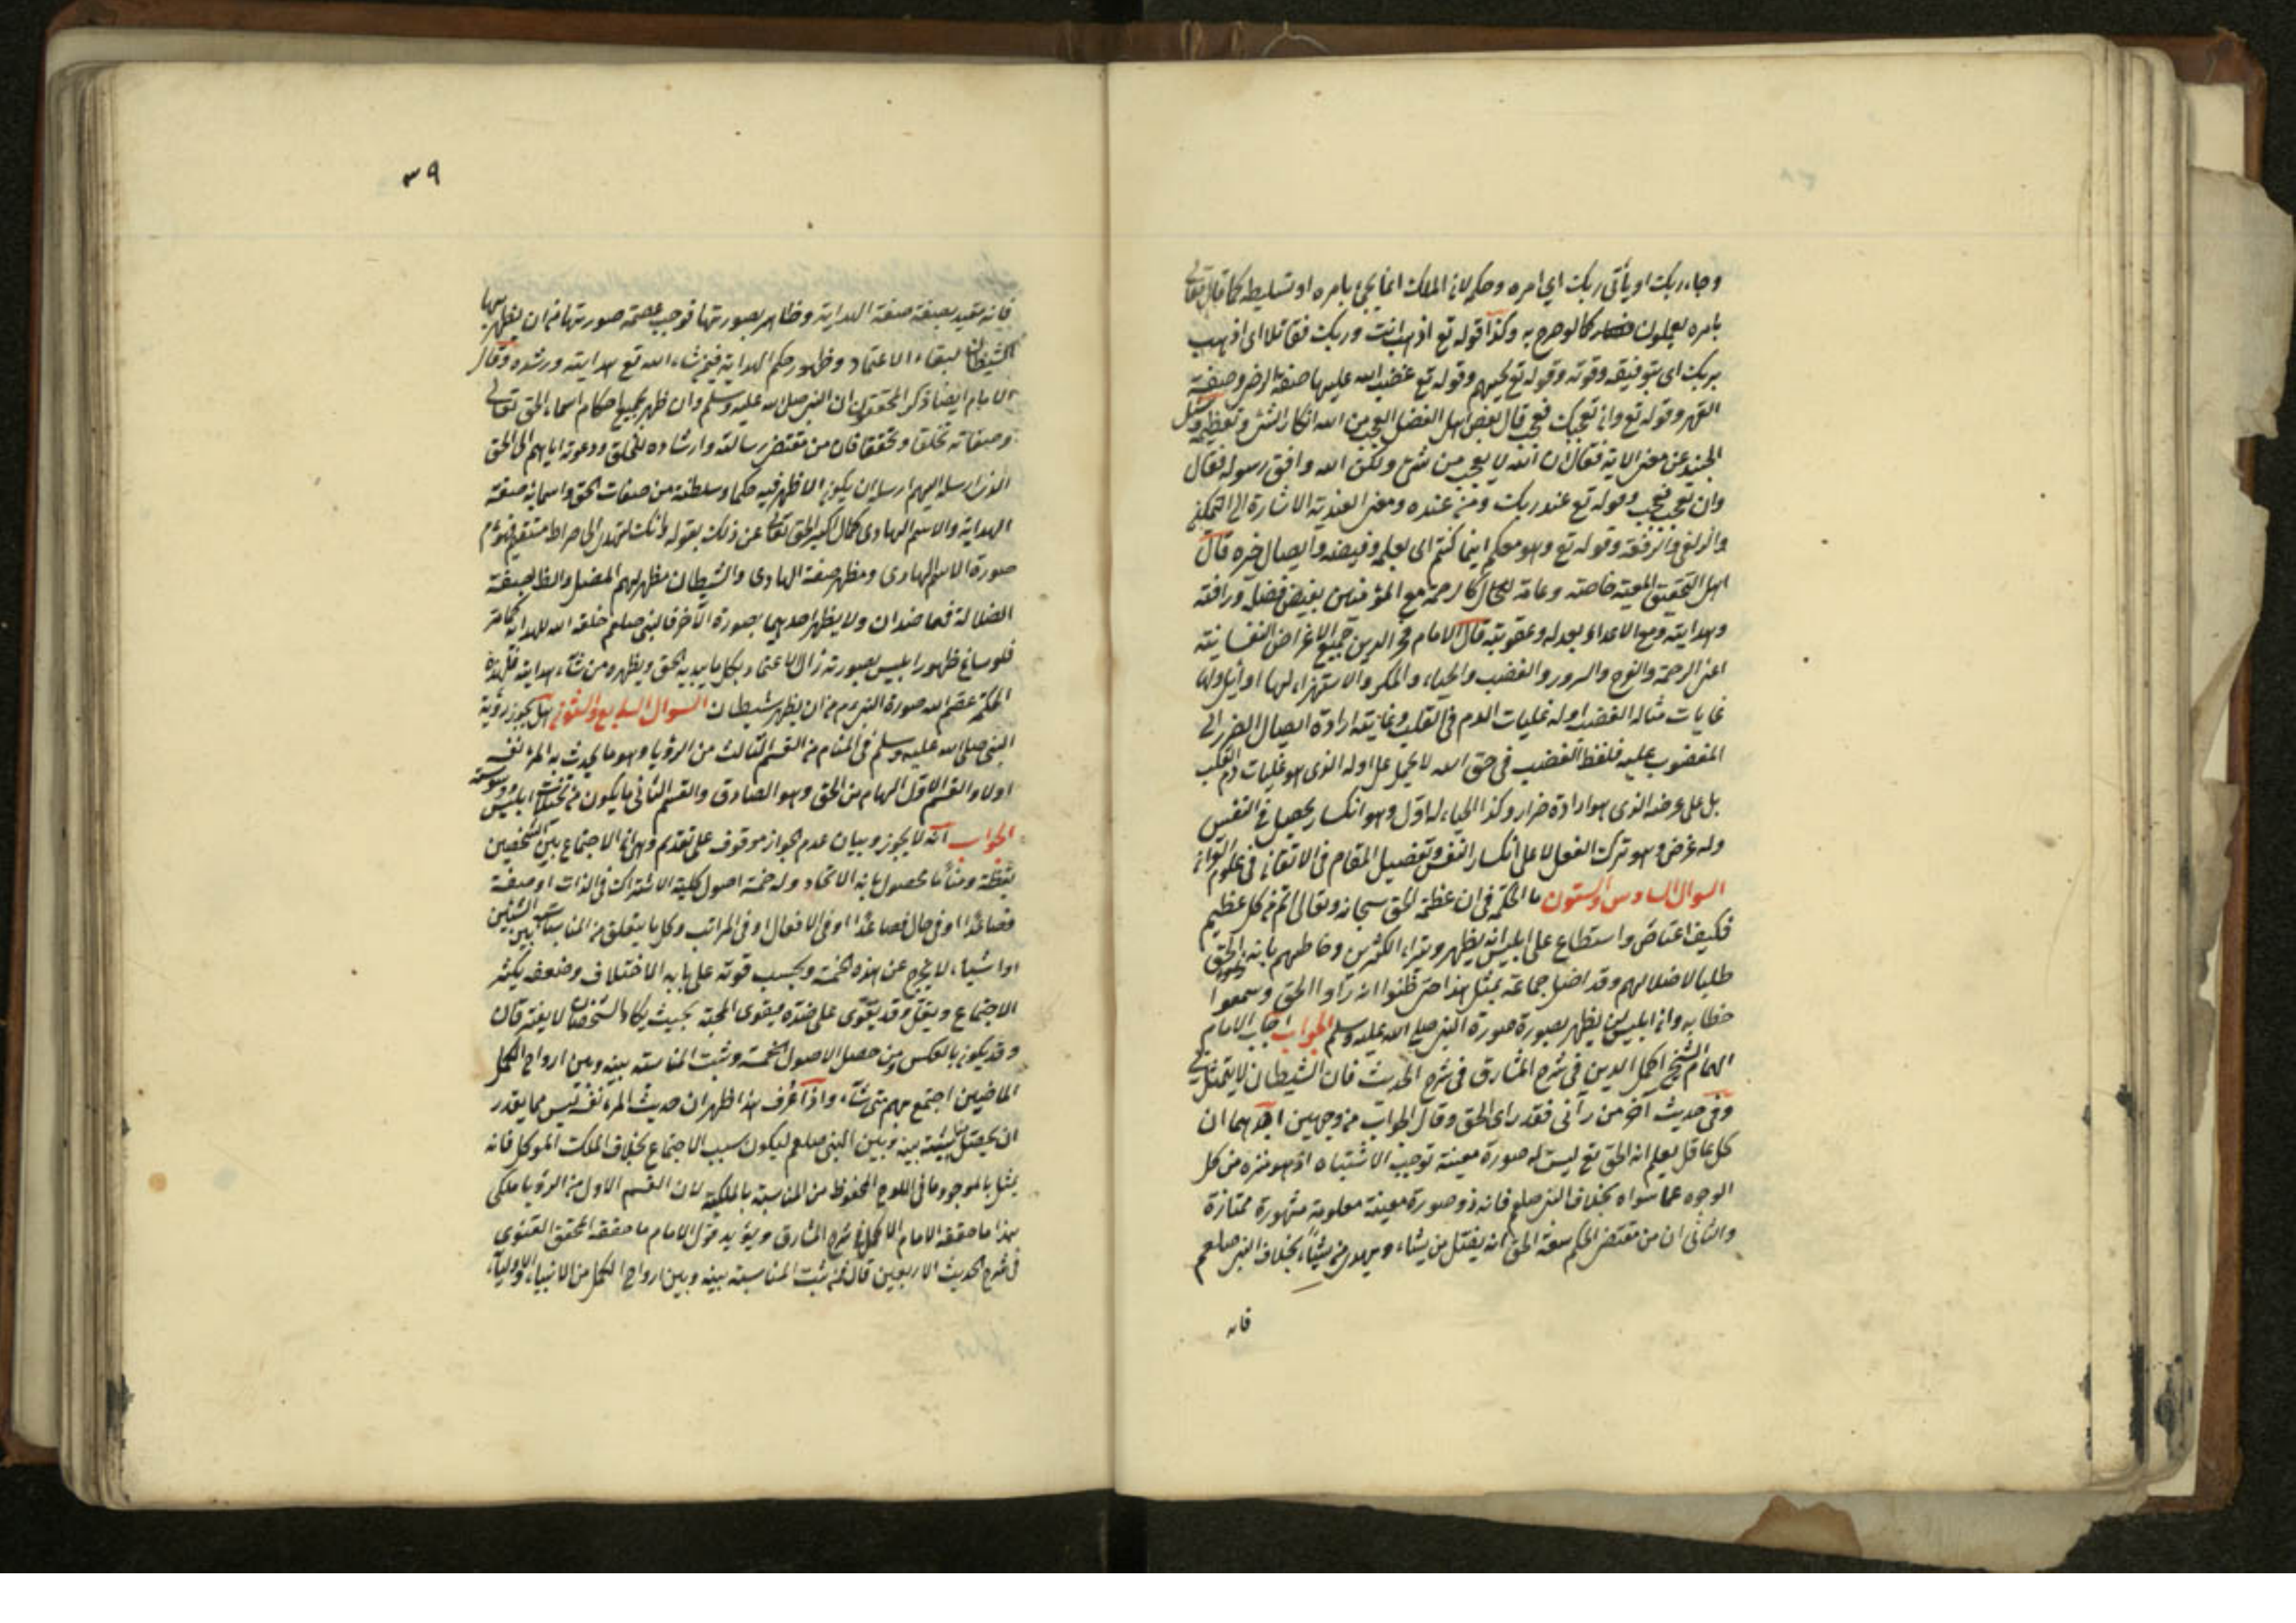 وجاء ربك او يأتى ربك اى امره وحكمه لان الملك انما يجئ بامره او تسليطه كما قال تعالى
بامره يعملون فصار كما لو صرح به وكذا قوله تع اذهب انت وربك فقاتلا اى اذهب
بربك اى بتوفيقه وقوته وقوله تع يحبهم وقوله تع غضب الله عليها صفة الرضى وصفة
القهر وقوله تع وان تعجب فعجب قال بعض اهل الفضل العجب من الله انكار الشئ وتعظيمه وسئل
الجنيد عن معنى الاية فقال ان الله لا يعجب من شئ ولكن الله وافق رسوله فقال
وان تعجب فعجب وقوله تع عند ربك ومن عنده ومعنى العندية الاشارة الى التمكين
والزلفى والرفعة وقوله تع وهو معكم اينما كنتم اى بعلمه وفيضه وايصال خيره قال
اهل التحقيق المعية خاصة وعامة للكل كالرحمة مع المؤمنين بفيض فضله ورأفته
وهدايته ومع الاعداء بعدله وعقوبته قال الامام فخر الدين جميع الاغراض النفسانية
اعنى الرحمة والفرح والسرور والغضب والحياء والمكر والاستهزاء لها اوائل ولها
غايات مثاله الغضب اوله غليات الدم فى القلب وغايته ارادة ايصال الضرر الى
المغضوب عليه فلفظ الغضب فى حق الله لا يحمل على اوله الذى هو غليات دم القلب
بل على غرضه الذى هو ارادة ضرار وكذا الحياء له اول وهو انكسار يحصل فى النفس
وله غرض وهو ترك الفعل لا على انكسار النفس وتفصيل المقام فى الاتقان فى علوم القرآن
السوال السادس والستون ما الحكمة فى ان عظمة الحق سبحانه وتعالى اتم من كل عظيم
فكيف اعتاض واستطاع على ابليس انه يظهر ويتراءى لكثيرين وخاطبهم بانه الحق
طلبا لاضلالهم وقد اضل جماعة بمثل هذا حتى ظنوا انه رأوا الحق وسمعوا
خطابه وان ابليس لن يظهر بصورة صورة النبى صلى الله عليه وسلم الجواب اجاب الامام
الهمام الشيخ اكمل الدين فى شرح المشارق فى شرح الحديث فان الشيطان لا يتمثل بى
وفى حديث آخر من رآنى فقد راى الحق وقال الجواب من وجهين احدهما ان
كل عاقل يعلم ان الحق تع ليس له صورة معينة توجب الاشتباه اذ هو منزه من كل
الوجوه عما سواه بخلاف النبى صلعم فانه ذو صورة معينة معلومة مشهورة ممتازة
والثانى ان من مقتضى الحكم سعة الحق انه يضل من يشاء ويهدى من يشاء بخلاف النبى صلعم
فانه
٣٩
فانه مقيد بصفة صفة الهداية وظاهر بصورتها فوجب عصمة صورتها من ان يظهر بها
الشيطان لبقاء الاعتماد وظهور حكم الهداية فيمن شاء الله تع هدايته ورشده وقال
الامام ايضا ذكر المحققون ان النبى صلى الله عليه وسلم وان ظهر بجميع احكام اسماء الحق تعالى
وصفاته تخلقا وتحققا فان من مقتضى رسالته وارشاده للخلق ودعوته اياهم الى الحق
الذى ارسله اليهم ارسله ان يكون الاظهر فيه حكما وسلطنة من صفات الحق واسمائه صفة
الهداية والاسم الهادى كما قال اكبر الحق تعالى عن ذلك بقوله وانك لتهدى الى صراط مستقيم فهو عم
صورة الاسم الهادى ومظهر صفة الهادى والشيطان مظهر اسم المضل والظاهر بصفة
الضلالة فهما ضدان ولا يظهر احدهما بصورة الآخر فالنبى صلعم خلقه الله للهداية كما مر
فلو ساغ ظهور ابليس بصورته زال الاعتماد بكل ما يبديه الحق ويظهره من شاء هدايته فلهذه
الحكمة عصم الله صورة النبى عم من ان يظهر شيطان السوال السابع والستون هل يجوز رؤية
النبى صلى الله عليه وسلم فى المنام من القسم الثالث من الرؤيا وهو ما يحدث به المرء نفسه
اولا والقسم الاول الهام من الحق وهو الصادق والقسم الثانى ما يكون من تخيلات ابليس ووسوسته
الجواب انه لا يجوز وبيان عدم الجواز موقوف على تقديم وهى ان الاجتماع بين الشخصين
يقظة ومناما لحصول ما به الاتحاد وله خمسة اصول كلية الاشتراك فى الذات او صفة
فصاعدا او فى حال فصاعدا او فى الافعال او فى المراتب وكل ما يتعلق من المناسبات بين الشيئين
او اشياء لا يخرج عن هذه الخمسة وبحسب قوته على ما به الاختلاف وضعفه يكثر
الاجتماع ويقل وقد يقوى على ضده فيقوى المحبة بحيث يكاد الشخصان لا يفترقان
وقد يكون بالعكس ومن حصل الاصول الخمسة وثبت المناسبة بينه وبين ارواح الكمل
الماضين اجتمع بهم متى شاء واذا عرف هذا ظهر ان حديث المرء نفسه ليس مما يقدر
ان يحصل مناسبة بينه وبين النبى صلعم ليكون سبب الاجتماع بخلاف الملك الموكل فانه
يمثل بالموجود ما فى اللوح المحفوظ من المناسبة بالملكية لان القسم الاول من الرؤيا ملكى
هذا ما حققه الامام الاكمل فى شرح المشارق ويؤيد قول الامام ما حققه المحقق القنوى
فى شرح الحديث الاربعين قال فمن ثبت المناسبة بينه وبين ارواح الكمل من الانبياء والاولياء